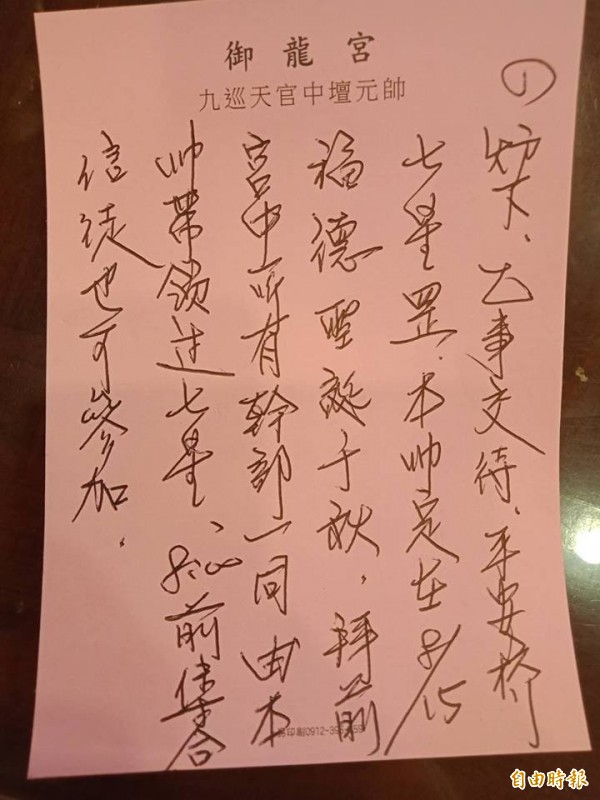 御龍宮
九巡天官中壇元帥
①
炉下、七事交待、平安桥
七星罡、本帅定在8/15
福德聖誕千秋,拜前
宮中所有幹部一同由本
帅帶領过七星、8:00前集合
信徒也可參加.
印刷0912-39
自由時報